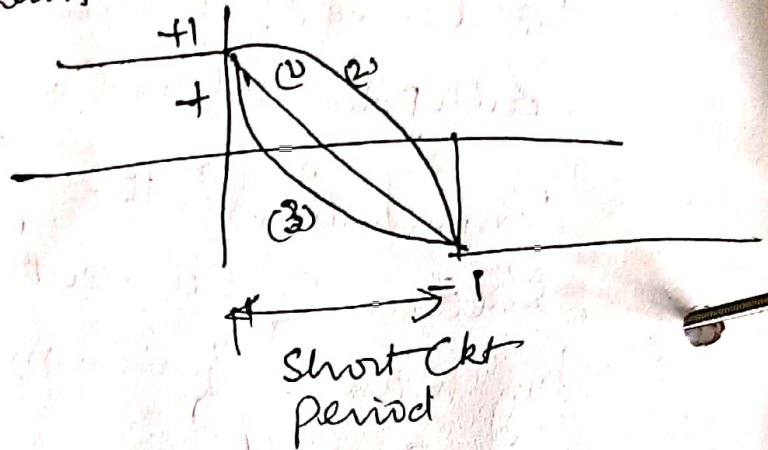 +1
+
(1) (2)
(3)
-1
Short Ckt
period